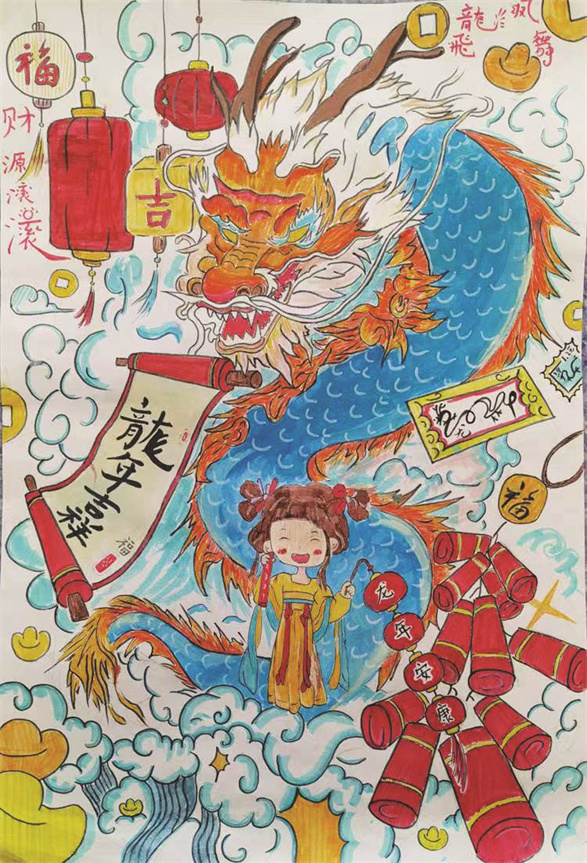 福
财源滚滚
吉
龍飛
舞
龍年吉祥
福
福
龙年安康